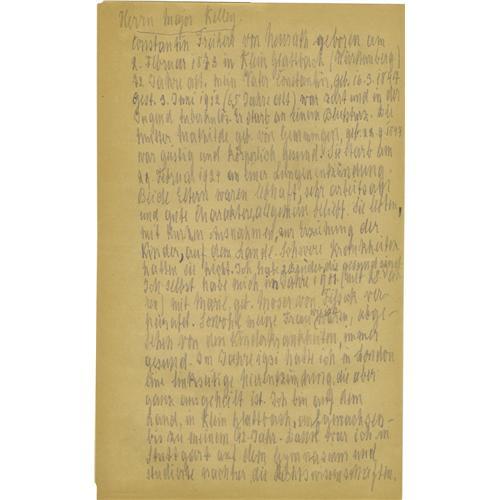 Herrn Major Kelley.
Constantin Freiherr von Neurath geboren am
2. Februar 1873 in Klein Glattbach (Württemberg)
72 Jahre alt. mein Vater Constantin, geb. 16.3.1847
gest. 9. Juni 1912 (65 Jahre alt) war zart und in der
Jugend tuberkulös. Er starb an einem Blutsturz. Die
mutter Mathilde geb. von Gemmingen, geb. 1847
war geistig und körperlich gesund. Sie starb am
Februar 1924 an einer Lungenentzündung.
Beide Eltern waren lebhaft, sehr arbeitsam
und gute Charakter, allgemein beliebt. Sie lebten,
mit kurzen Ausnahmen, zur Erziehung der
Kinder, auf dem Lande. Schwere Krankheiten
hatten sie nicht. Ich habe 2 Brüder, die gesund sind.
Ich selbst habe mich, im Jahre 1901 (mit
) mit Marie geb. Moser von Filseck ver-
heiratet. Sowohl meine Frau waren, abge-
sehen von den Kinderkrankheiten, immer
gesund. Im Jahre 1931 hatte ich in London
eine linksseitige die aber
ganz ausgeheilt ist. Ich bin auf dem
Land, in Klein Glattbach, aufgewachsen
bis zu meinem 12. Jahr. Dann war ich in
Stuttgart auf dem Gymnasium und
studierte nachher die Rechtswissenschaften.